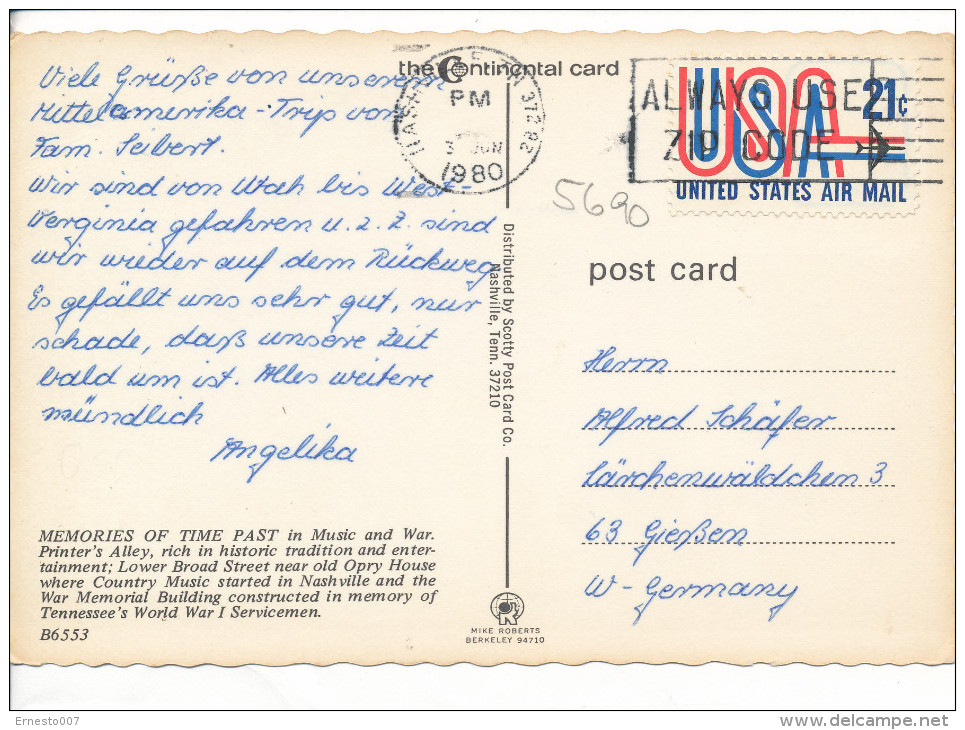 Viele Grüße von unserem
Mittelamerika-Trip von
Fam. Seibert.
Wir sind von Utah bis West-
Verginia gefahren u. z. Z. sind
wir wieder auf dem Rückweg
Es gefällt uns sehr gut, nur
schade, daß unsere Zeit
bald um ist. Alles weitere
mündlich
Angelika
MEMORIES OF TIME PAST in Music and War.
Printer's Alley, rich in historic tradition and enter-
tainment; Lower Broad Street near old Opry House
where Country Music started in Nashville and the
War Memorial Building constructed in memory of
Tennessee's World War I Servicemen.
B6553
the Continental card
PM
JUN
1980
37282
Distributed by Scotty Post Card Co.
Nashville, Tenn. 37210
MIKE ROBERTS
BERKELEY 94710
ALWAYS USE
ZIP CODE
USA 21c
UNITED STATES AIR MAIL
5690
post card
Herrn
Alfred Schäfer
Lärchenwäldchen 3
63 Gießen
W-Germany
Ernesto007
www.delcampe.net